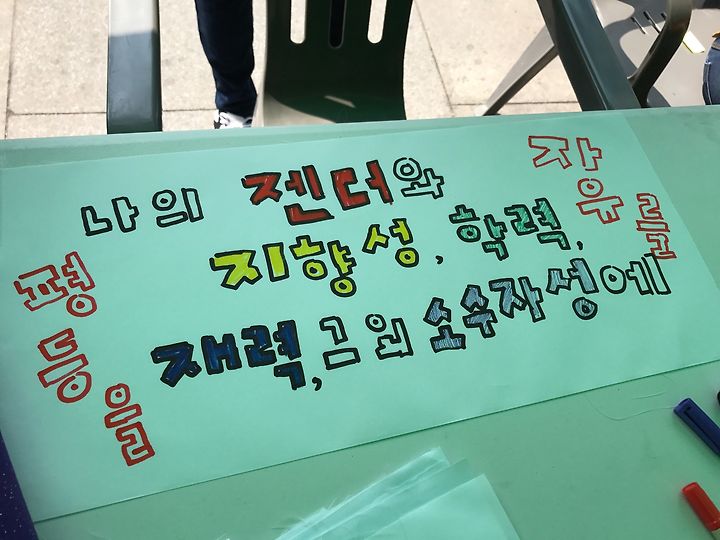 나의 젠더와
지향성, 학력,
재력, 그 외 소수자성에
자유를
평등을